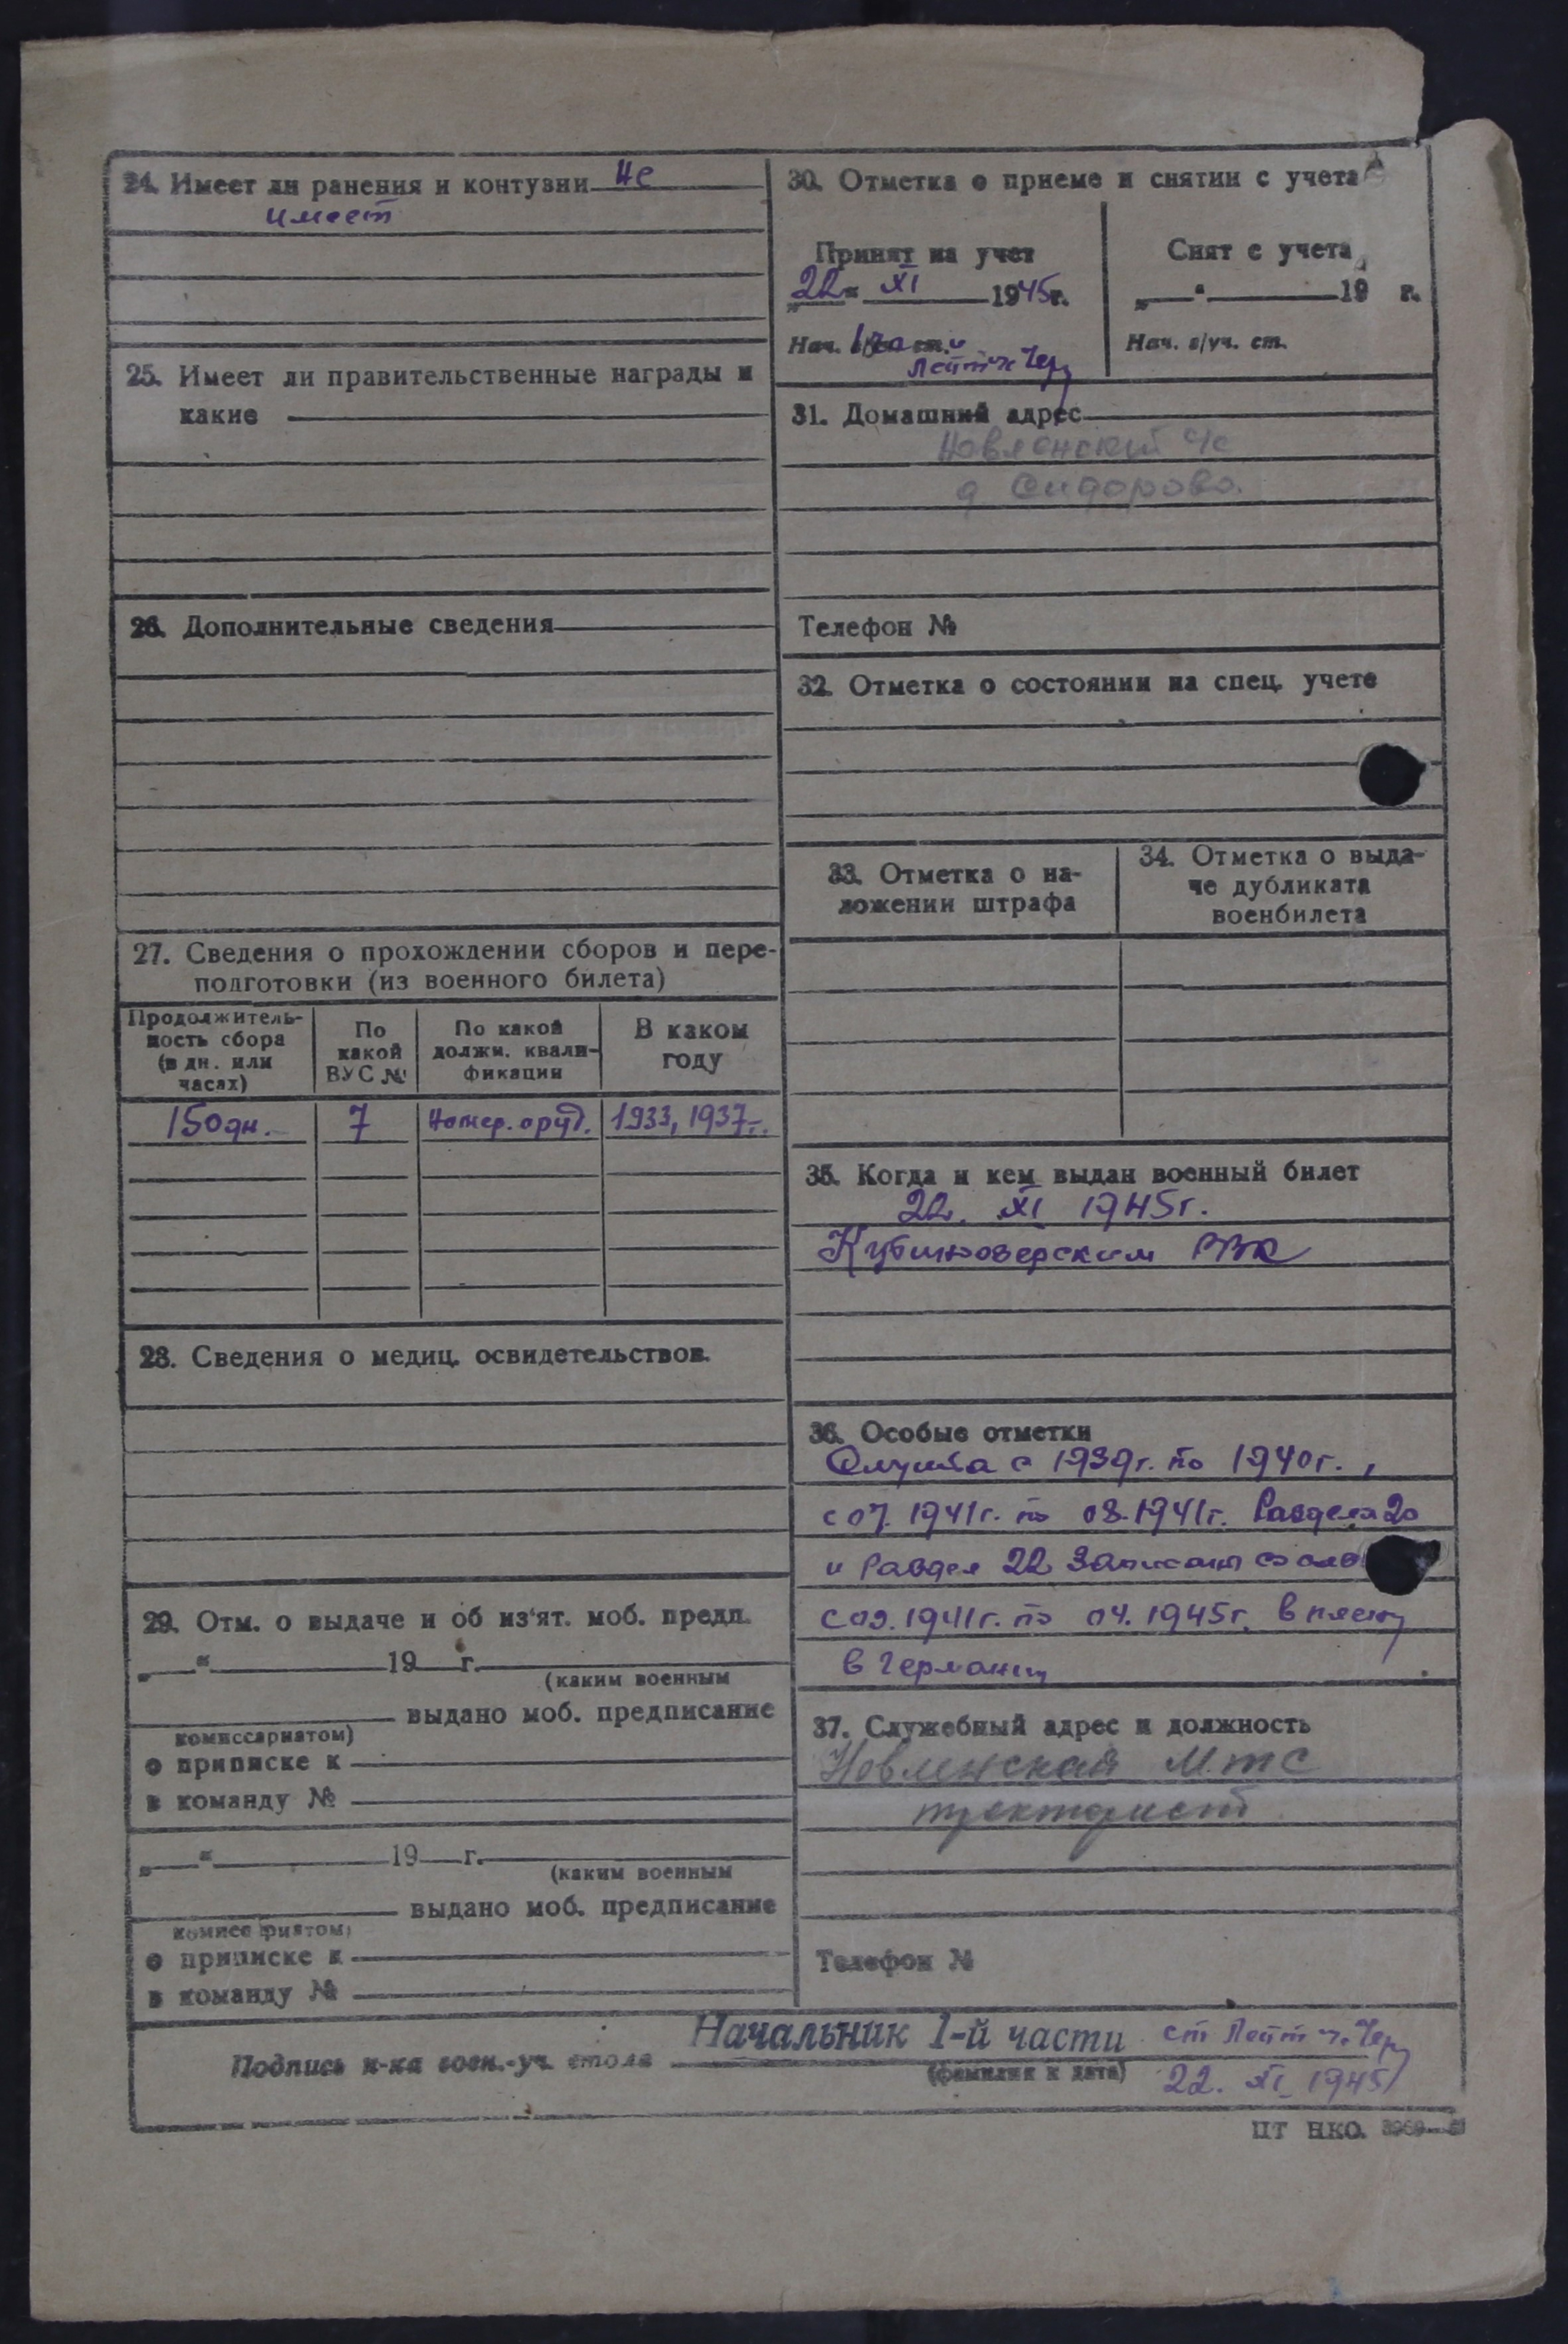 24. Имеет ли ранения и контузии не
имеет
25. Имеет ли правительственные награды и
какие
26. Дополнительные сведения
27. Сведения о прохождении сборов и пере-
подготовки (из военного билета)
Продолжитель-
ность сбора
(в дн. или
часах)
По
какой
ВУС №
По какой
должн. квали-
фикации
В каком
году
150 дн. 7 Номер. оруд. 1933, 1937
28. Сведения о медиц. освидетельствов.
29. Отм. о выдаче и об из'ят. моб. предп.
„ “ 19 г.
(каким военным
выдано моб. предписание
комиссариатом)
о приписке к
в команду №
„ “ 19 г.
(каким военным
выдано моб. предписание
комиссариатом)
о приписке к
в команду №
30. Отметка о приеме и снятии с учета
Принят на учет
„22“ XI 1945г.
Нач. 1 части
Лейт
Снят с учета
„ “ 19 г.
Нач. в/уч. ст.
31. Домашний адрес
Новленский с/с
д Сидорово.
Телефон №
32. Отметка о состоянии на спец. учете
33. Отметка о на-
ложении штрафа
34. Отметка о выда-
че дубликата
военбилета
35. Когда и кем выдан военный билет
22. XI 1945г.
Кубиноозерским РВК
36. Особые отметки
Служба с 1939г. по 1940г.,
с 07.1941г. по 08.1941г. Раздел 20
и Раздел 22 Записаны со слов
с 09.1941г. по 04.1945г. в плену
в Германии
37. Служебный адрес и должность
Новленская МТС
тракторист
Телефон №
Подпись н-ка воен.-уч. стола Начальник 1-й части ст Лейт
(фамилия и дата) 22. XI 1945
ЦТ НКО.